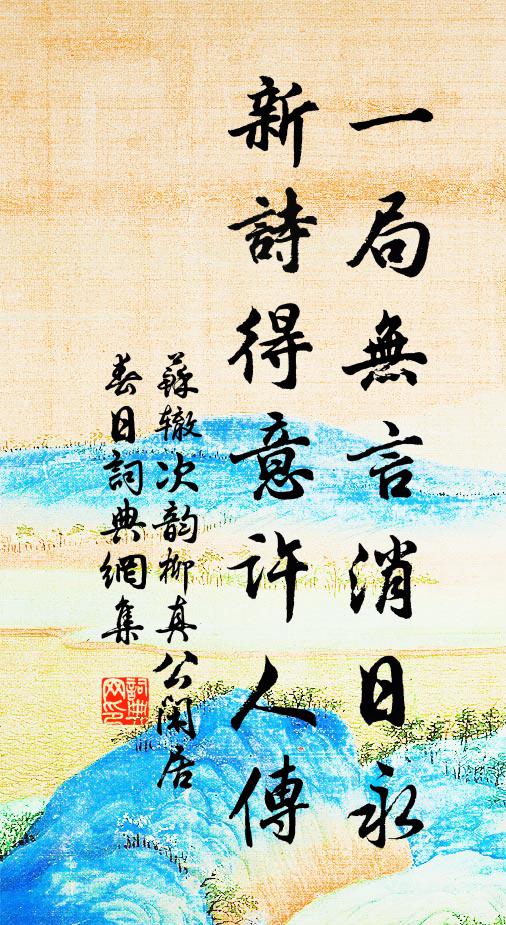 一局無言消日永
新詩得意許人傳
蘇辙次韵柳真公閑居
春日詞典網集
詞典網印